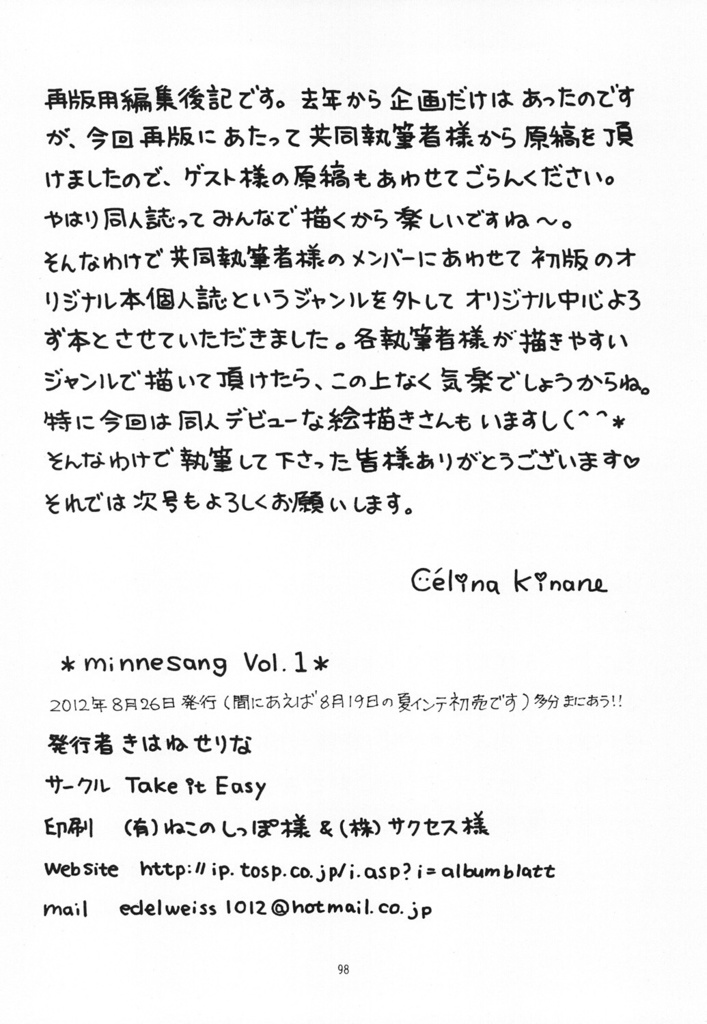 再版用編集後記です。去年から企画だけはあったのです
が、今回再版にあたって共同執筆者様から原稿を頂
けましたので、ゲスト様の原稿もあわせてごらんください。
やはり同人誌ってみんなで描くから楽しいですね～。
そんなわけで共同執筆者様のメンバーにあわせて初版のオ
リジナル本個人誌というジャンルを外してオリジナル中心よろ
ず本とさせていただきました。各執筆者様が描きやすい
ジャンルで描いて頂けたら、この上なく気楽でしょうからね。
特に今回は同人デビューな絵描きさんもいますし(^^*
そんなわけで執筆して下さった皆様ありがとうございます♡
それでは次号もよろしくお願いします。
Célina Kinane
*minnesang Vol.1*
2012年8月26日発行(間にあえば8月19日の夏インテ初売です)多分まにあう!!
発行者きはねせりな
サークル Take it Easy
印刷 (有)ねこのしっぽ様&(株)サクセス様
website http://ip.tosp.co.jp/i.asp?i=albumblatt
mail edelweiss1012@hotmail.co.jp
98